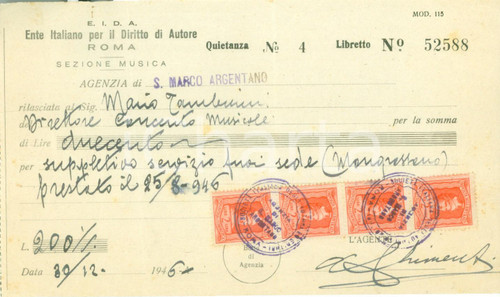 E. I. D. A.
MOD. 115
Ente Italiano per il Diritto di Autore
ROMA
Quietanza No 4 Libretto No 52588
SEZIONE MUSICA
AGENZIA di S. MARCO ARGENTANO
rilasciata al Sig. Mario Tamburini
Direttore Concerto Musicale per la somma
di Lire duecento
per suppletivo servizio fuori sede (Mongrassano)
prestato il 25/8-946
L. 200%
L'AGENTE
di
Agenzia
Data 30-12- 1946